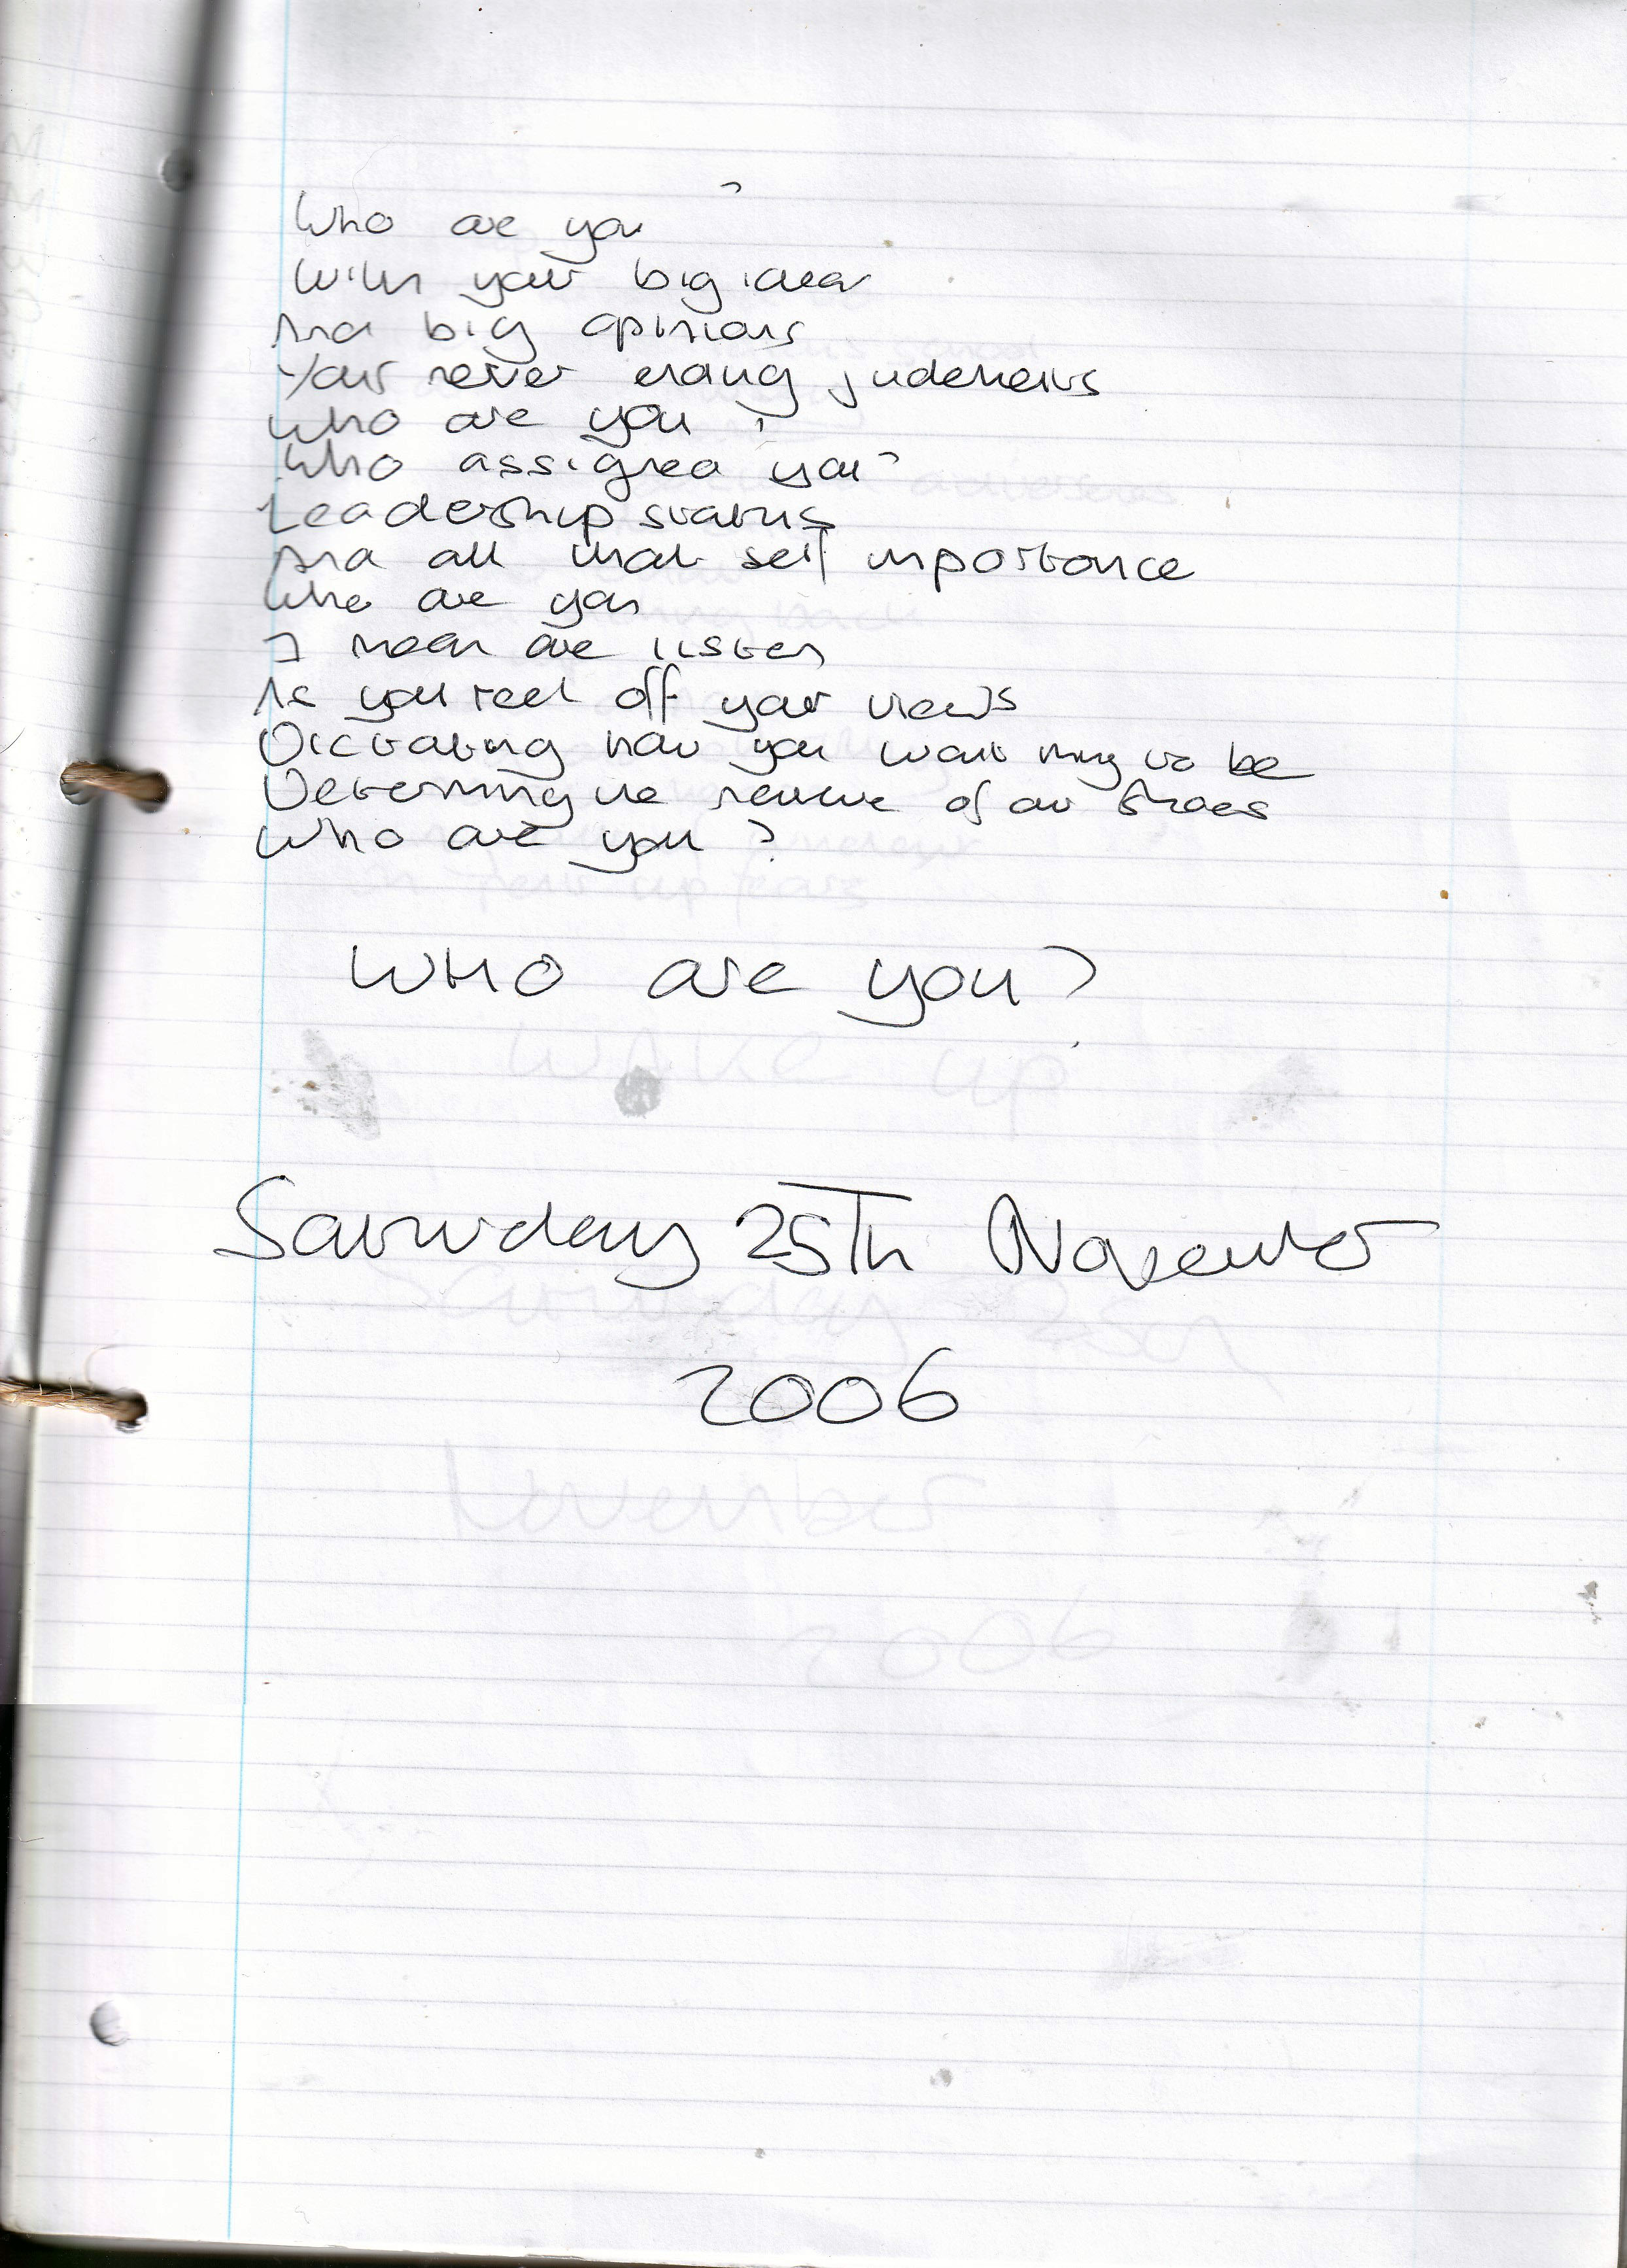 Who are you
With your big idea
And big opinions
Your never ending judements
Who are you?
Who assigned you?
Leadership status
And all that self importance
Who are you
I mean are listen
As you reel off your views
Dictating how you want my to be
Determing the of our
Who are you?
WHO are you?
Saturday 25Th November
2006
WAKE up
Saturday 25th
November
2006